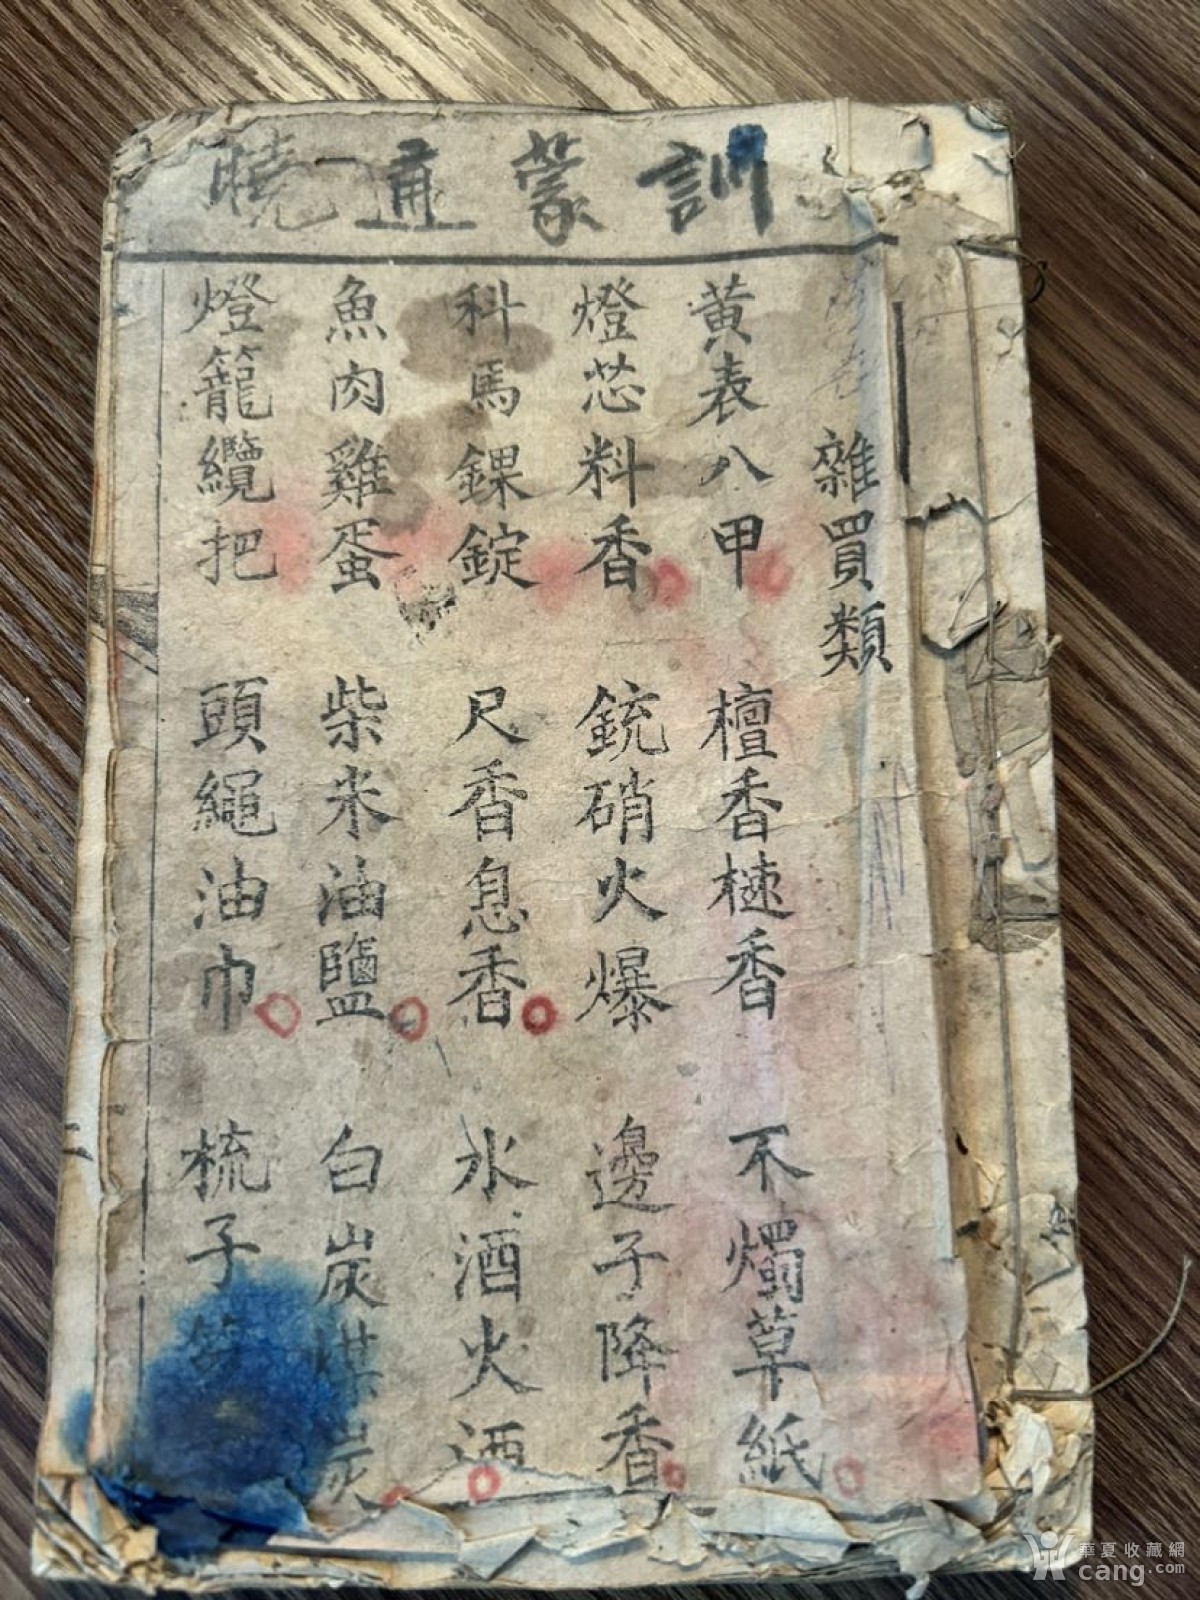 訓蒙通曉
雜買類
黄表八甲 檀香香 不燭草紙
燈芯料香 銃硝火爆 邊子降香
科馬錁錠 尺香息香 水酒火酒
魚肉雞蛋 柴米油鹽 白炭煤炭
燈籠纜把 頭繩油巾 梳子
華夏收藏網
cang.com